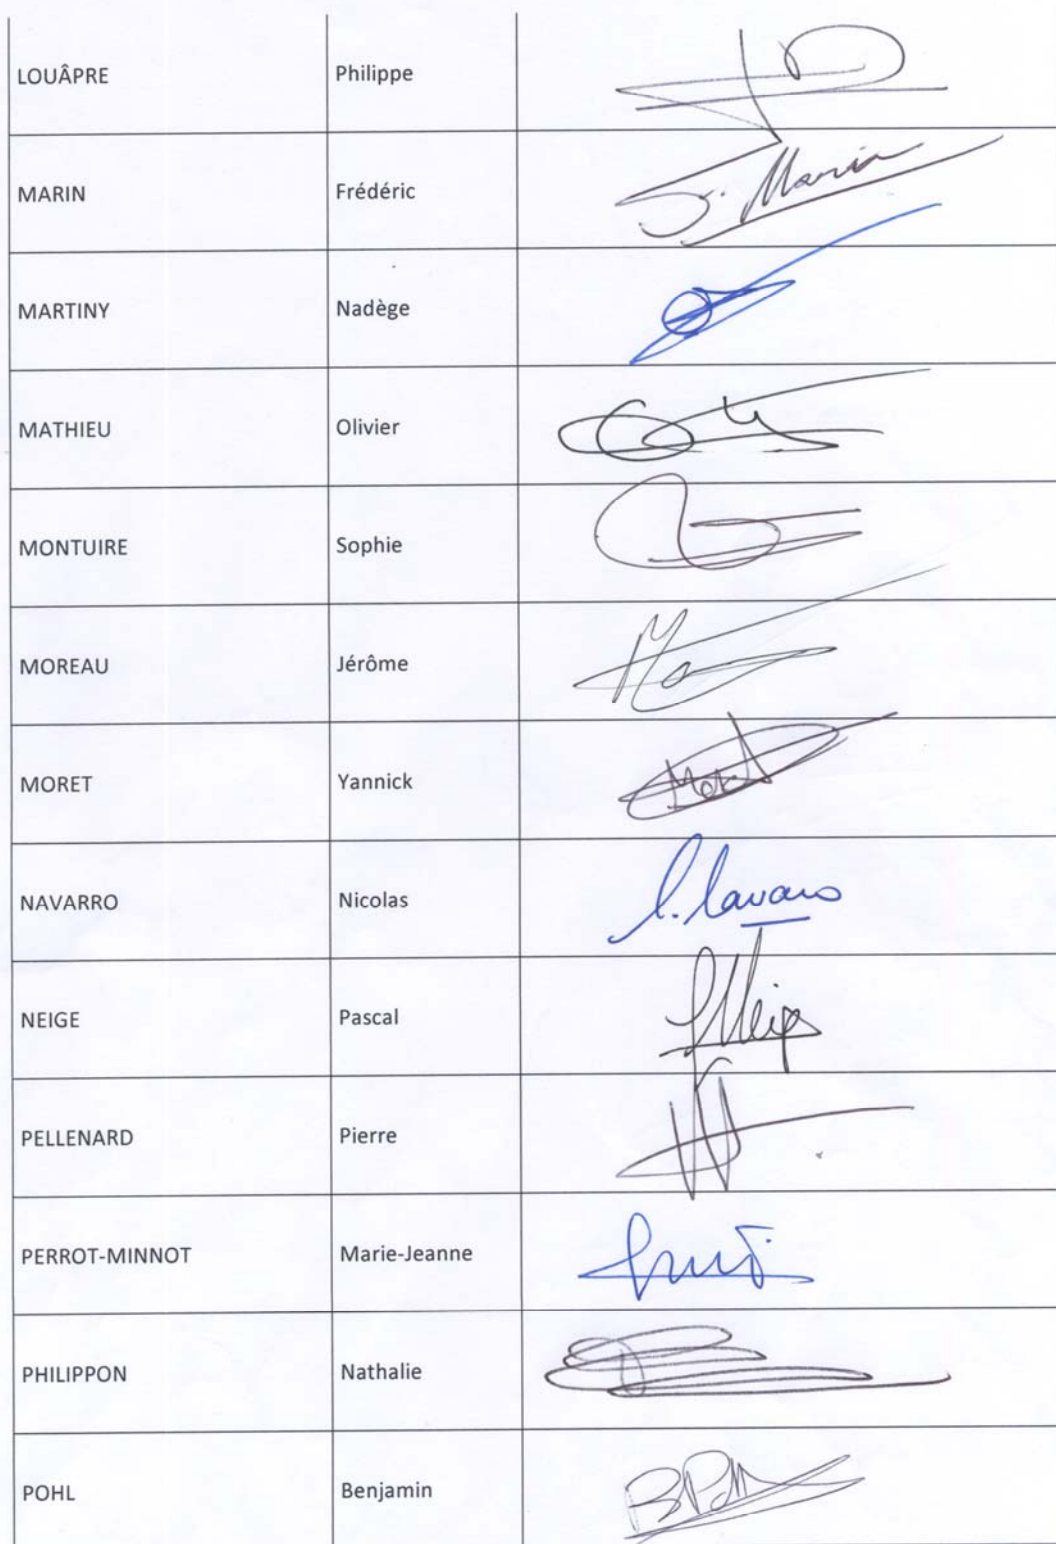 LOUÂPRE Philippe
MARIN Frédéric F. Marin
MARTINY Nadège
MATHIEU Olivier
MONTUIRE Sophie
MOREAU Jérôme
MORET Yannick Moret
NAVARRO Nicolas N. Navarro
NEIGE Pascal
PELLENARD Pierre
PERROT-MINNOT Marie-Jeanne
PHILIPPON Nathalie
POHL Benjamin